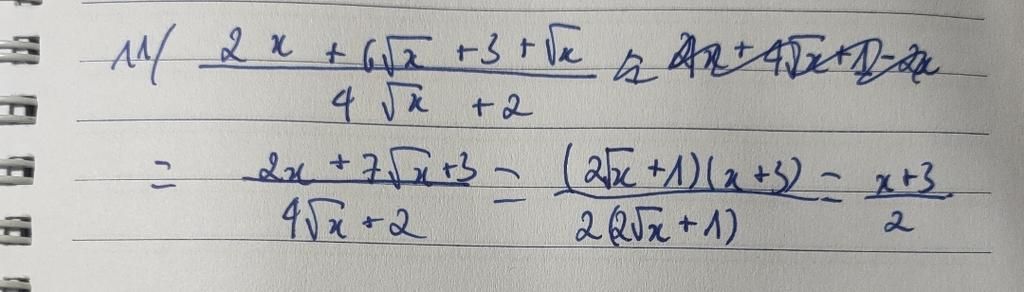 11/ (2x + 6√x + 3 + √x)/(4√x + 2) = 4x + 4√x + 1 - 2x
= (2x + 7√x + 3)/(4√x + 2) = ((2√x + 1)(x + 3))/(2(2√x + 1)) = (x + 3)/2